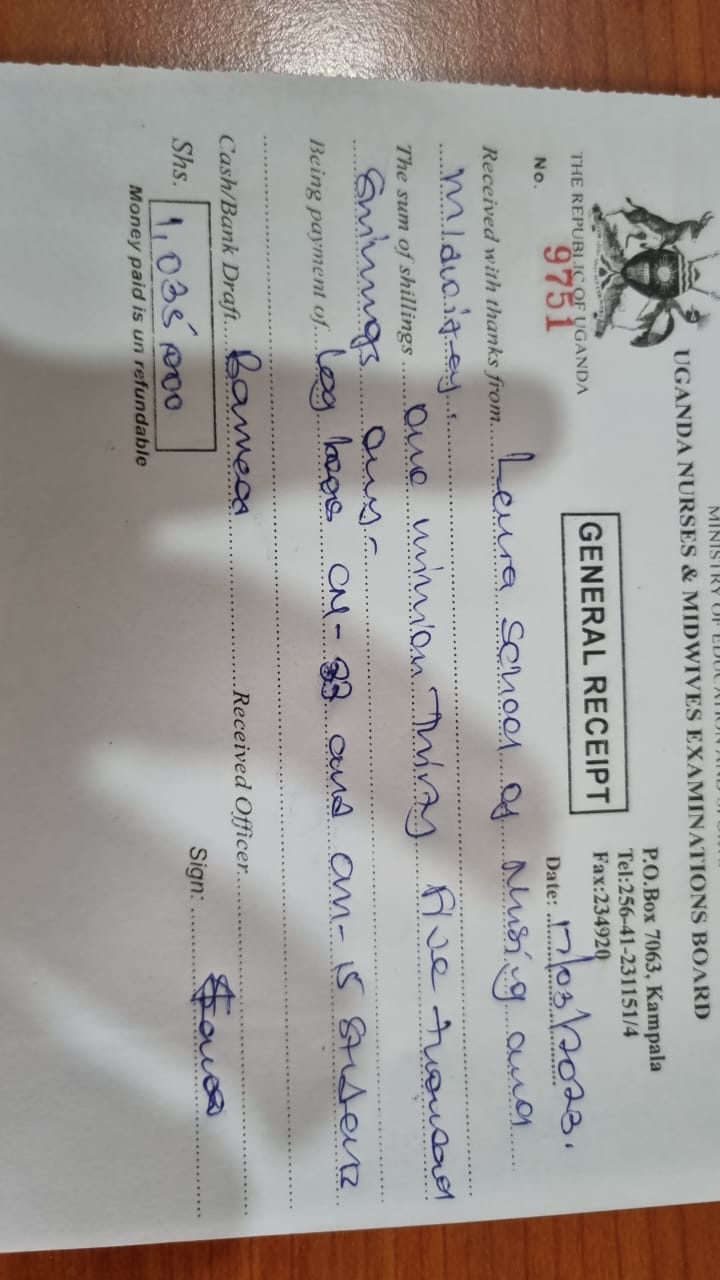 MINISTRY OF EDUCATION AND
UGANDA NURSES & MIDWIVES EXAMINATIONS BOARD
P.O.Box 7063, Kampala
Tel:256-41-231151/4
Fax:234920
THE REPUBLIC OF UGANDA
GENERAL RECEIPT
No. 9751
Date: 17/03/2023.
Received with thanks from Leura School of Nursing and
Midwifery.
The sum of shillings one million Thirty five thousand
Shillings only.-
Being payment of log books CN- 33 and CM- 15 Students
Cash/Bank Draft Received Officer
Shs. 1,035,000 Sign:
Money paid is un refundable